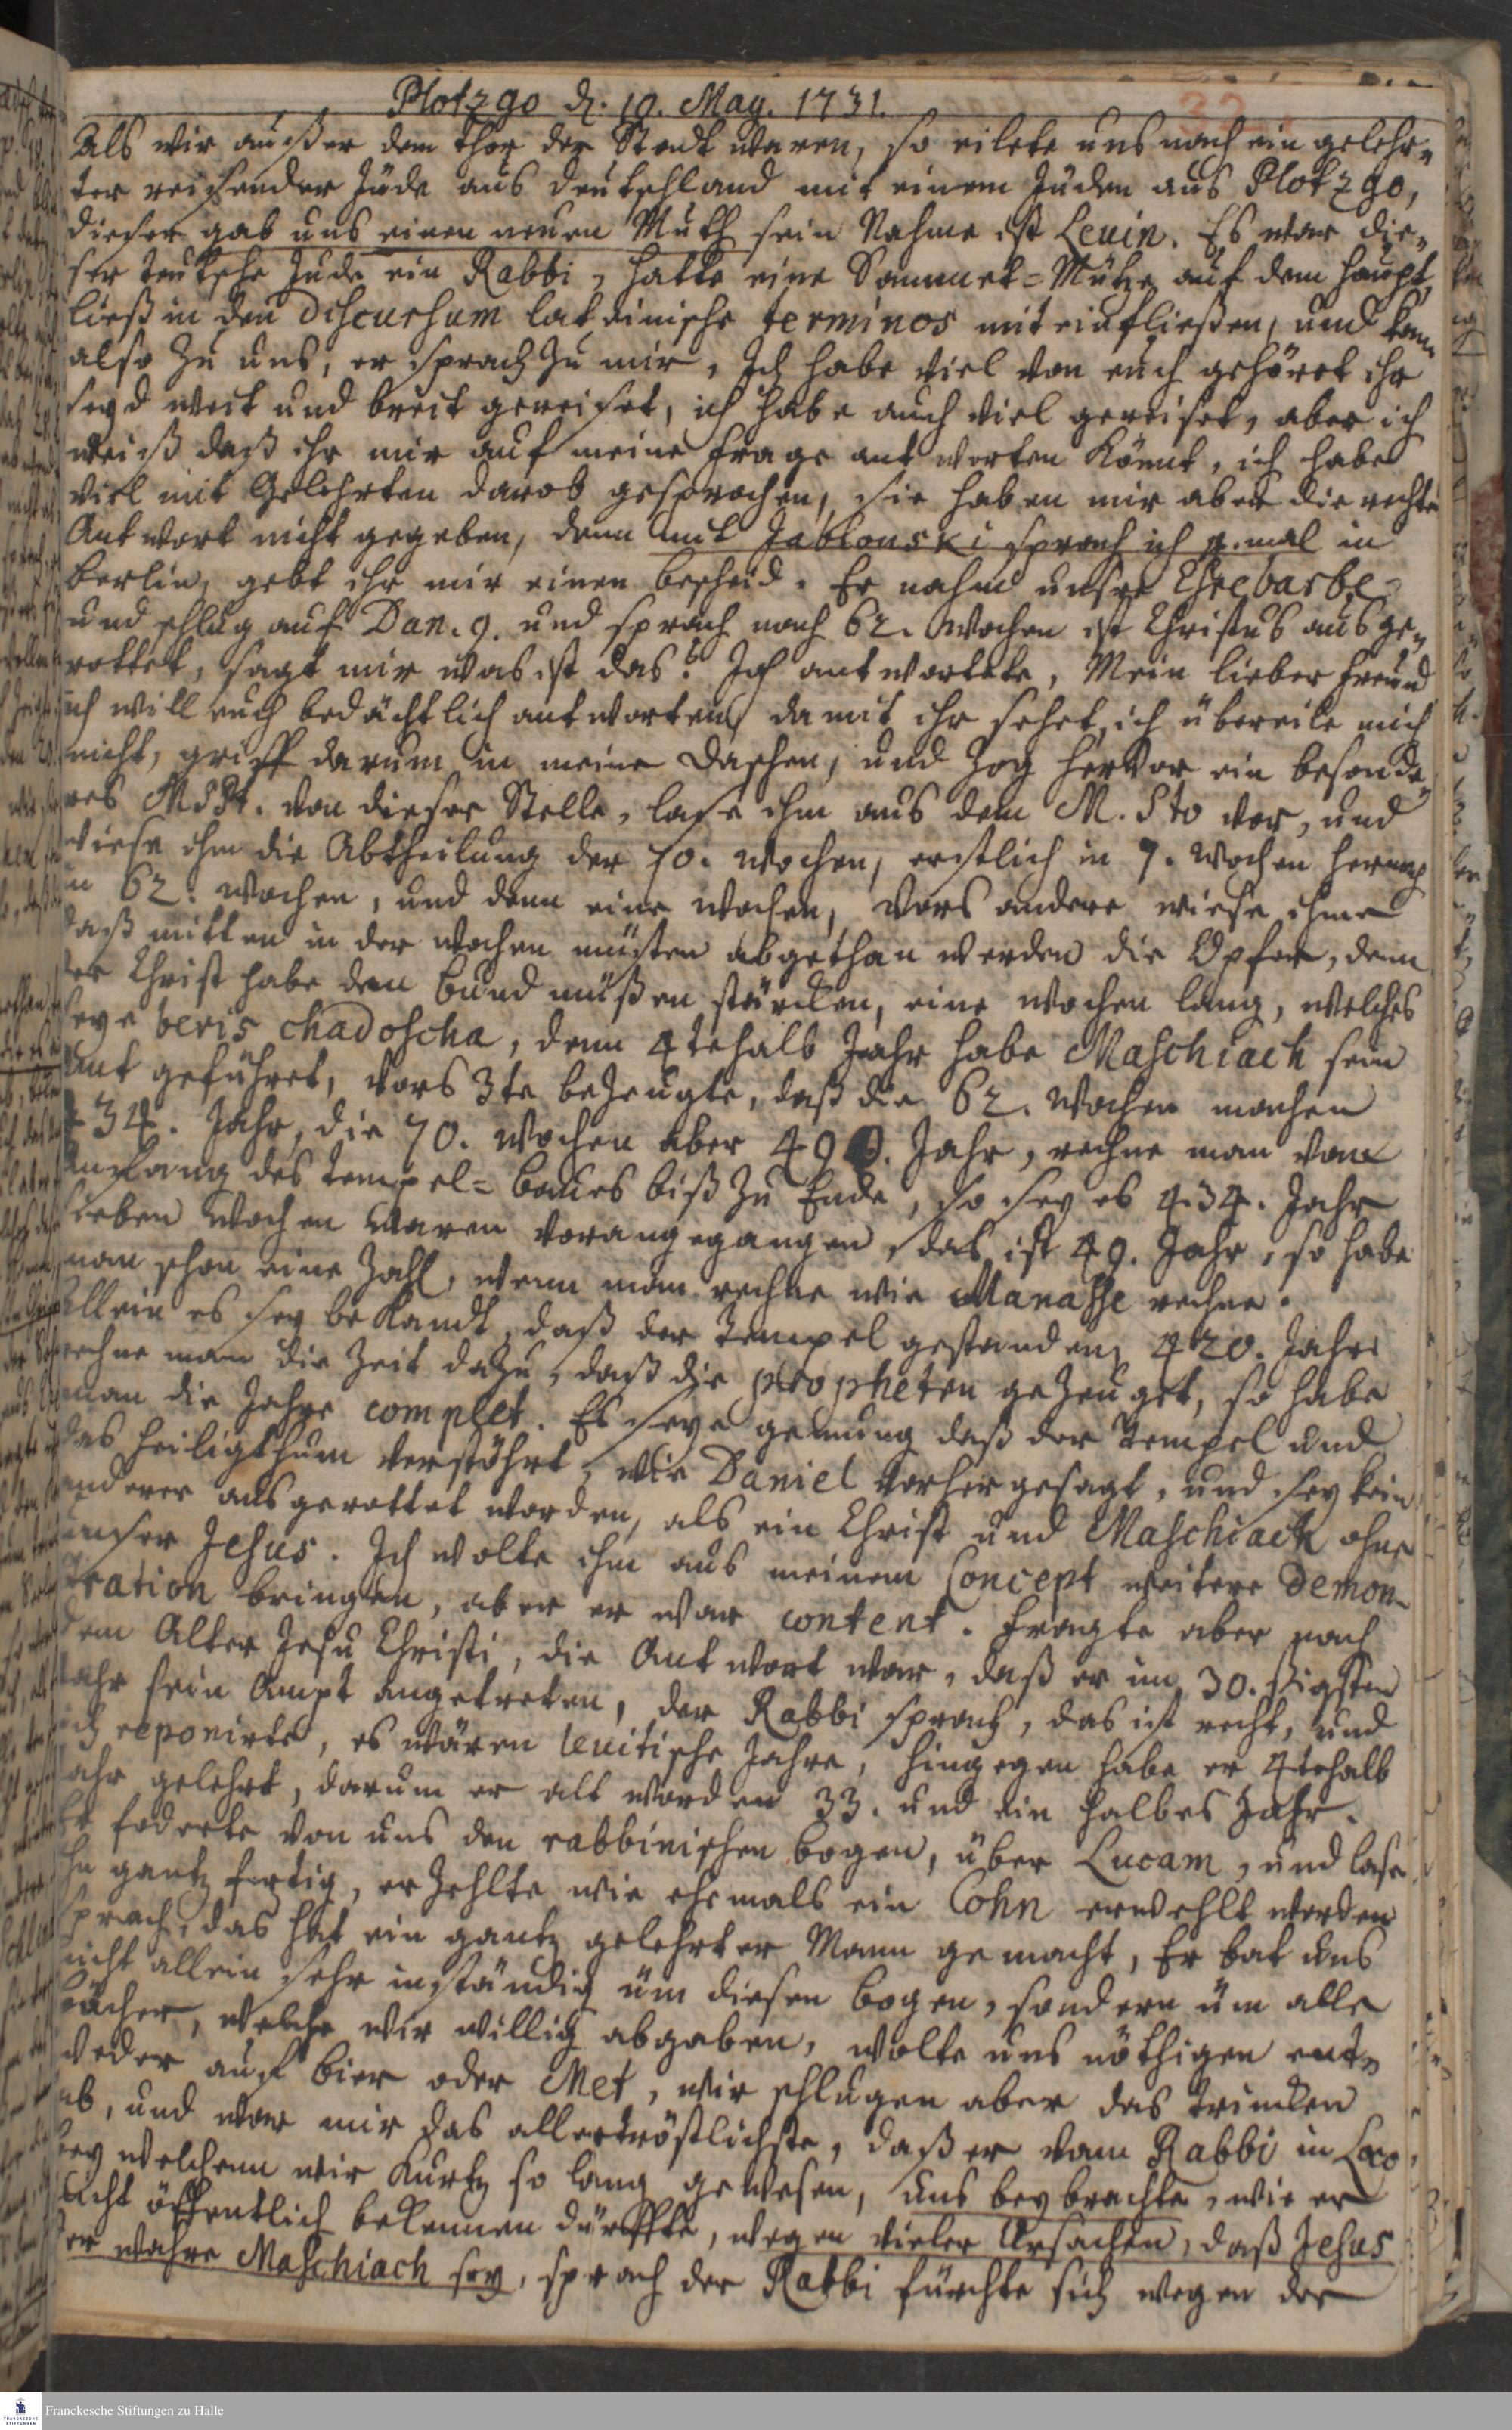 Plotzgo d. 10. May. 1731.
32.
Als wir außer dem Thor der Stadt waren, so eilete uns nach ein gelehr-
ter reisender Jude aus Deutschland mit einem Juden aus Plotzgo,
dieser gab uns einen neuen Muth sein Nahme ist Levin. Es war die-
ser teutsche Jude ein Rabbi, hatte eine Sammet-Mütze auf dem Haupt,
ließ in den Discursum lateinische terminos mit einfließen, und kam
also zu uns, er sprach zu mir, Ich habe viel von euch gehöret ihr
seyd weit und breit gereiset, ich habe auch viel gereiset, aber ich
weiß daß ihr mir auf meine Frage antworten könnt, ich habe
viel mit Gelehrten darob gesprochen, sie haben mir aber die rechte
Antwort nicht gegeben, denn mit Jablonski sprach ich 4. mal in
Berlin, gebt ihr mir einen bescheid. Er nahm unsre
und schlug auf Dan. 9. und sprach nach 62. Wochen ist Christus ausge-
rottet, sagt mir was ist das? Ich antwortete, Mein lieber Freund
ich will euch bedächtlich antworten, damit ihr sehet, ich übereile mich
nicht, griff darum in meine Daschen, und zog hervor ein besonde-
res MSSt. von dieser Stelle, lase ihm aus dem M. Sto vor, und
wiese ihm die Abtheilung der 70. wochen, erstlich in 7. Wochen hernach
in 62. wochen, und dann eine wochen, vors andere wiese ihme
daß mitten in der wochen müsten abgethan werden die Opfer, denn
der Christ habe den Bund müßen stärcken, eine wochen lang, welches
seye beris chadoscha, denn 4tehalb Jahr habe Maschiach sein
Amt geführet, vors 3te bezeugte, daß die 62. Wochen machen
434. Jahr, die 70. wochen aber 490. Jahr, rechne man vom
Anfang des Tempel-baues biß zu Ende, so sey es 434. Jahr
sieben wochen waren vorangegangen, das ist 49. Jahr, so habe
man schon eine Zahl, wenn man rechne wie Manasse rechne.
Allein es sey bekandt, daß der Tempel gestanden 420. Jahr
rechne man die Zeit dazu, daß die propheten gezeuget, so habe
man die Jahre complet. Es seye genung daß der Tempel und
das Heiligthum verstöhrt, wie Daniel vorhergesagt, und sey kein
anderer ausgerottet worden, als ein Christ und Maschiach ohne
unser Jesus. Ich wolte ihm aus meinem Concept weitere Demon-
stration bringen, aber er war content. fragte aber nach
dem Alter Jesu Christi, die Antwort war, daß er im 30.ßigsten
Jahr sein Ampt angetreten, der Rabbi sprach, das ist recht, und
ich reponirte, es wären levitische Jahre, hingegen habe er 4tehalb
Jahr gelehrt, darum er alt worden 33. und ein halbes Jahr.
Er foderte von uns den rabbinischen bogen, über Lucam, und lase
ihn gantz fertig, erzehlte wie ehemals ein Cohn erwehlt worden
sprach, das hat ein gantz gelehrter Mann gemacht, Er bat uns
nicht allein sehr inständig üm diesen bogen, sondern üm alle
bücher, welche wir willig abgaben, wolte uns nöthigen ent-
weder auf bier oder Met, wir schlugen aber das trincken
ab, und war mir das allertröstlichste, daß er vom Rabbi in Loco,
bey welchem wir kurtz so lang gewesen, uns beybrachte, wie er
nicht öffentlich bekennen dürffte, wegen vieler Ursachen, daß Jesus
der wahre Maschiach sey, sprach der Rabbi fürchte sich wegen der
Franckesche Stiftungen zu Halle